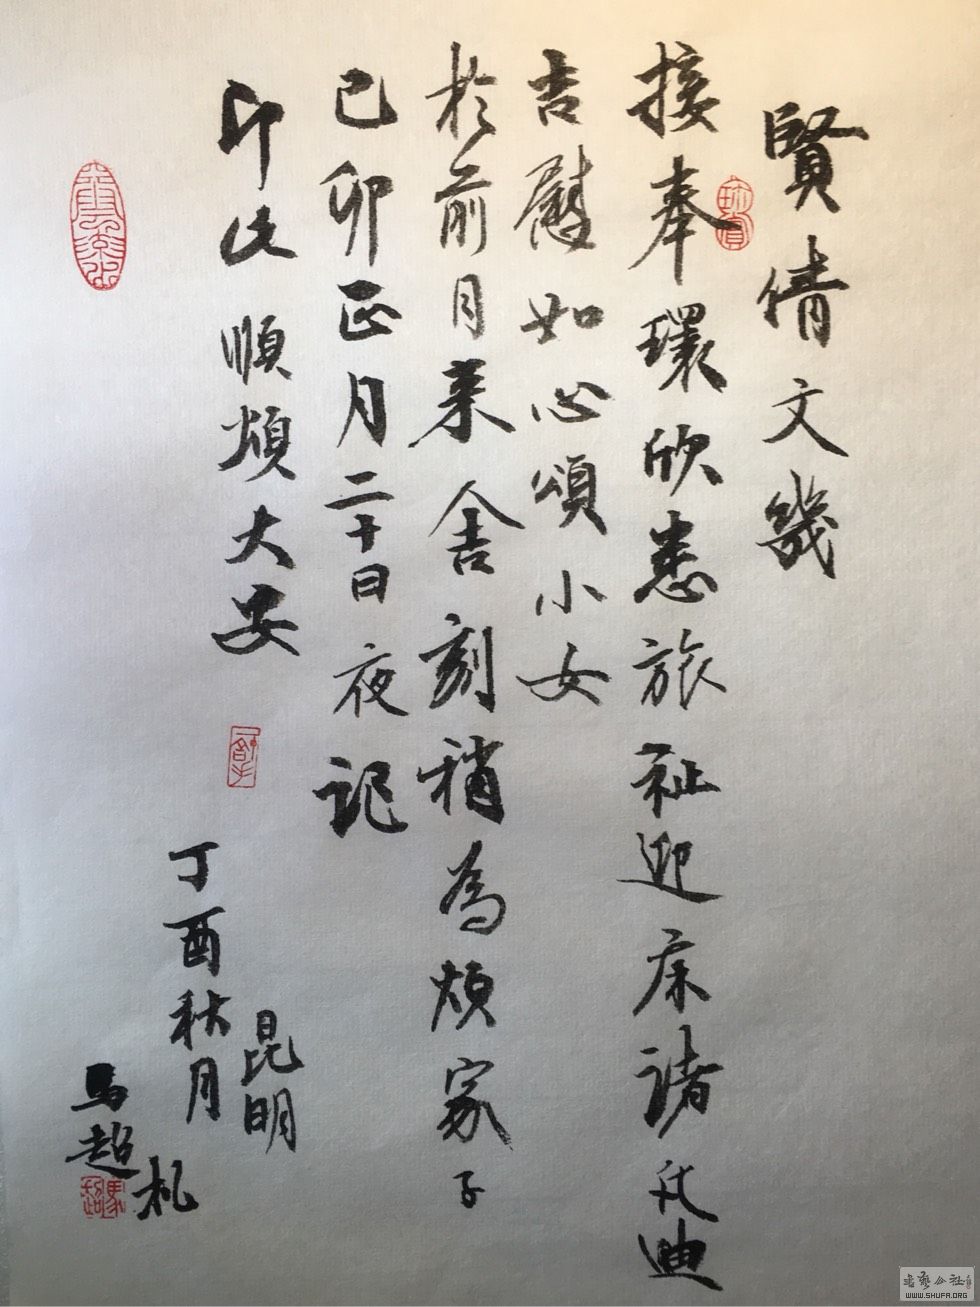 賢倩文幾
接奉環欣悉旅祉迎康諸代迪
吉慰如心頌小女
於前月来舍刻稍為煩家子
己卯正月二十日夜記
印此順煩大安
昆明
丁酉秋月
札
馬超
WWW.SHUFA.ORG